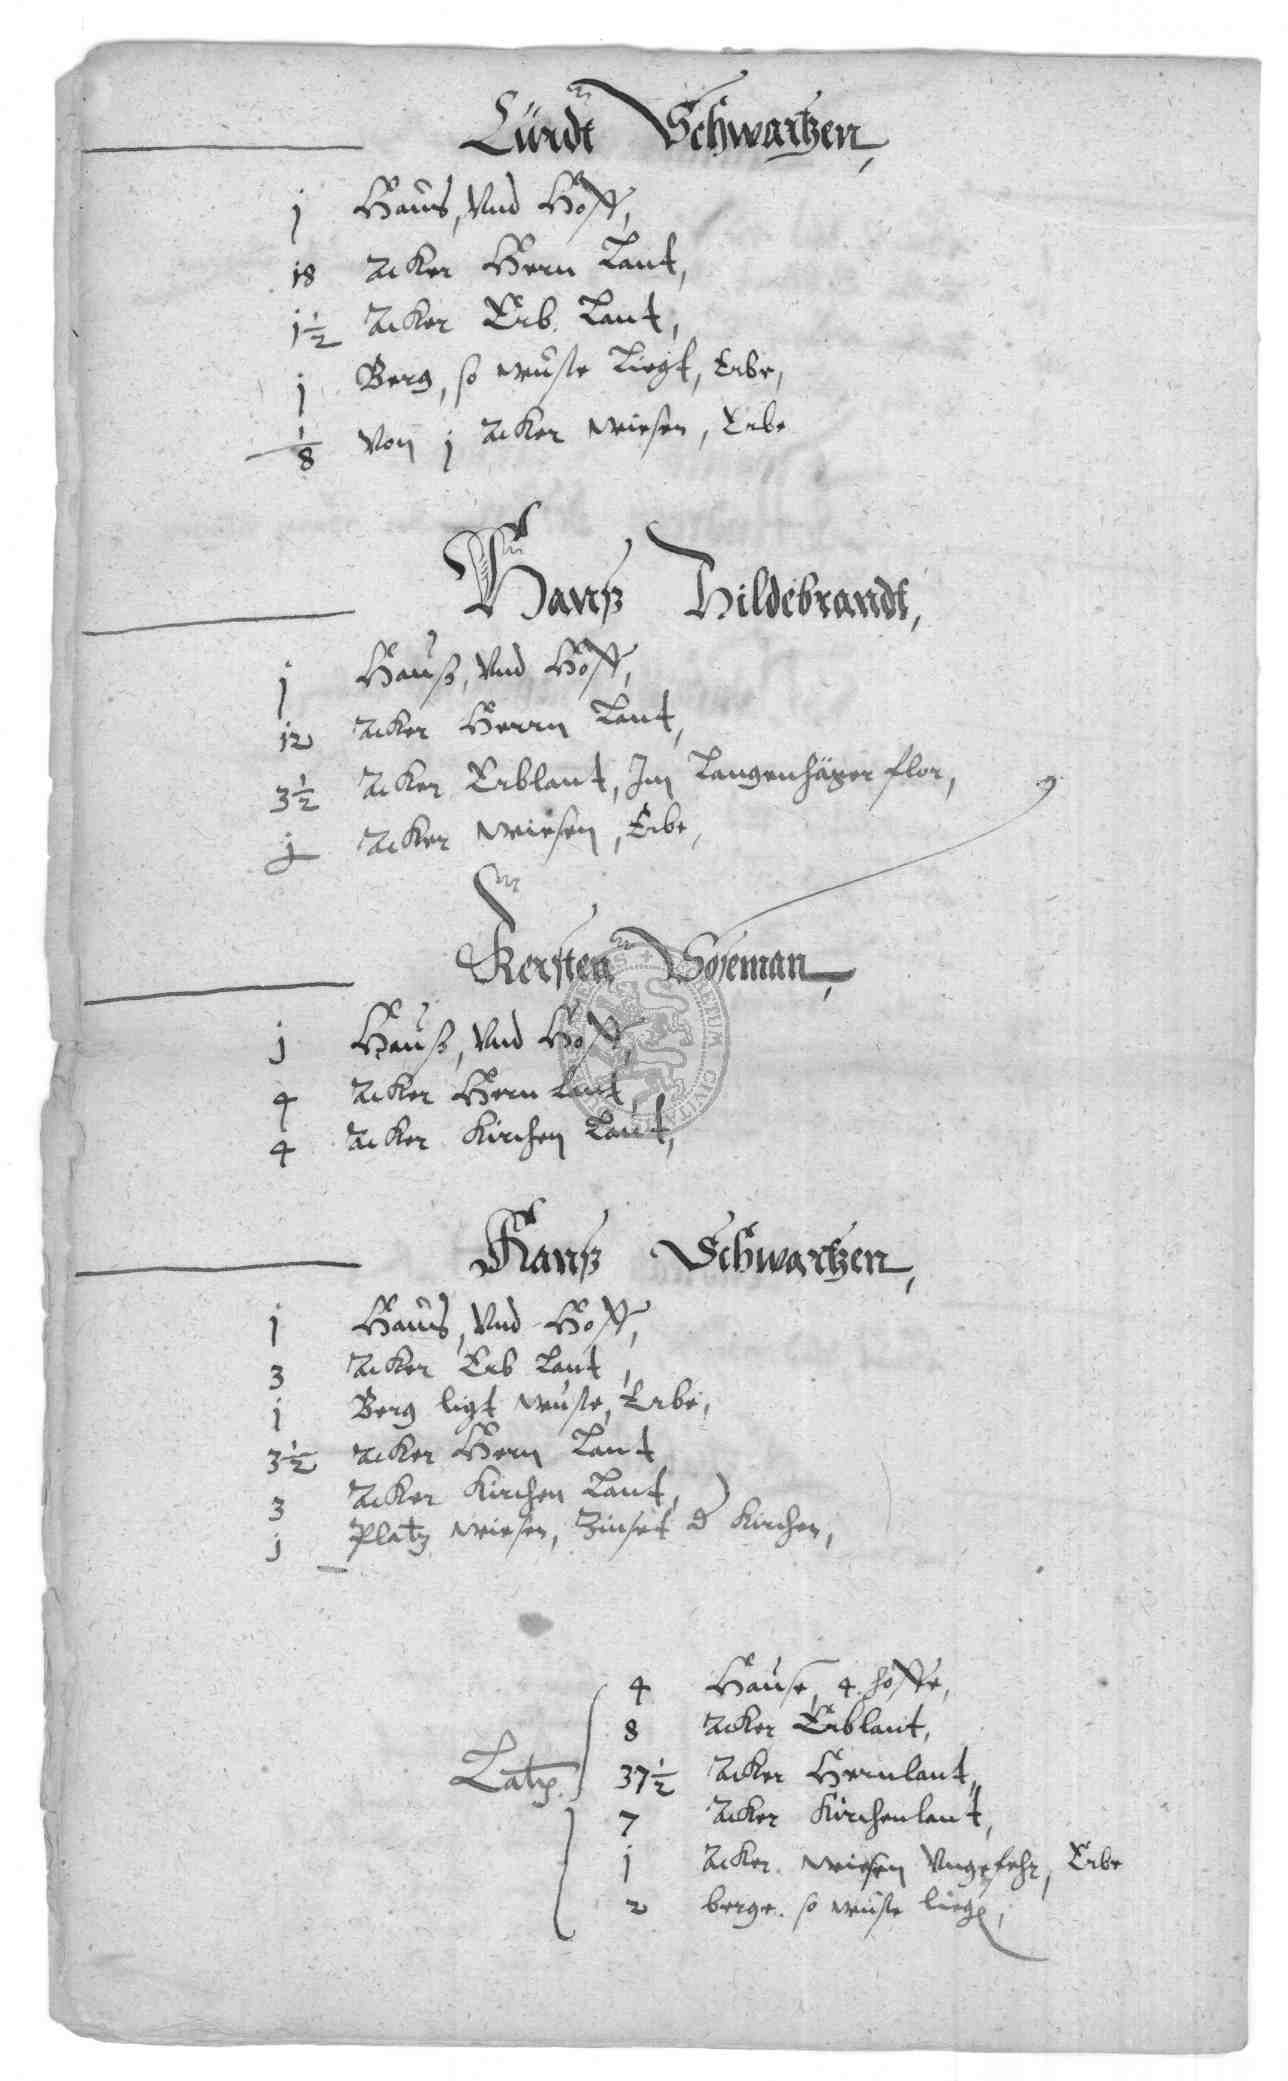 Cürdt Schwartzen,
j Haus, Vnd Hoff,
18 Acker Hern Lant,
j½ Acker Erb Lant,
j Berg, so wüste Liegt, Erbe,
⅛ Von j Acker wiesen, Erbe
Hanß Hildebrandt,
j Hauß, Vnd Hoff,
12 Acker Herrn Lant,
3½ Acker Erblant, Im Langenhäger flor,
j Acker wiesen, Erbe,
Kersten Söseman,
j Hauß, Vnd Hoff,
4 Acker Hern Lant,
4 Acker Kirchen Lant,
Hanß Schwartzen,
j Haus, Vnd Hoff,
3 Acker Erb Lant,
j Berg ligt wüste, Erbe,
3½ Acker Hern Lant
3 Acker Kirchen Lant,
j Platz wiesen, Zinset d Kirchen,
4 Hause, 4 höffe,
8 Acker Erblant,
Latg. 37½ Acker Hernlant,
7 Acker Kirchenlant,
j Acker wiesen Vngefehr, Erbe
2 berge so wüste liegen,